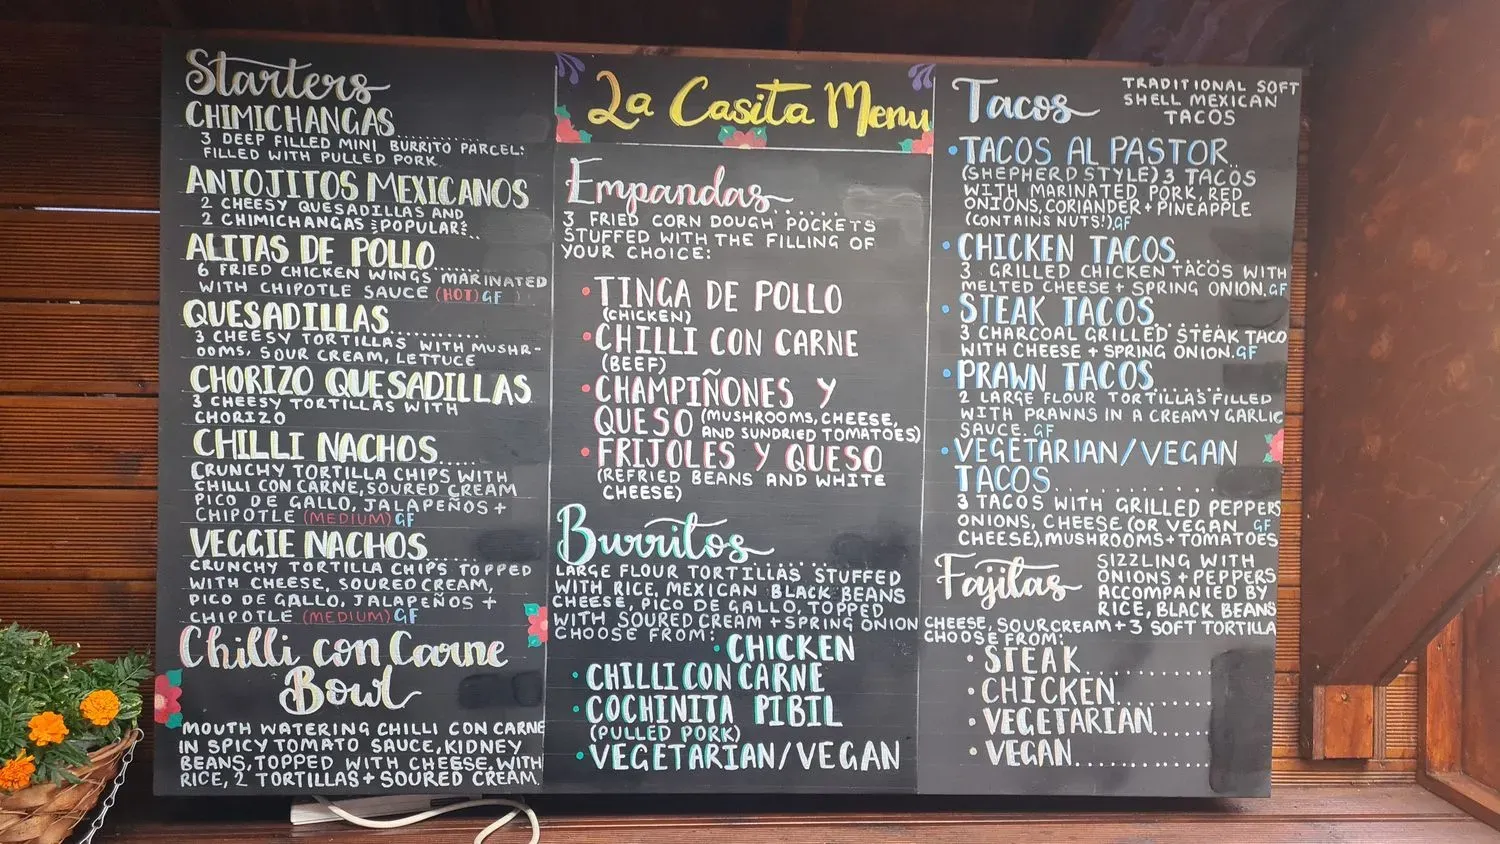 Starters
CHIMICHANGAS
3 DEEP FILLED MINI BURRITO PARCELS
FILLED WITH PULLED PORK
ANTOJITOS MEXICANOS
2 CHEESY QUESADILLAS AND
2 CHIMICHANGAS POPULAR
ALITAS DE POLLO
6 FRIED CHICKEN WINGS MARINATED
WITH CHIPOTLE SAUCE (HOT) GF
QUESADILLAS
3 CHEESY TORTILLAS WITH MUSHR-
OOMS, SOUR CREAM, LETTUCE
CHORIZO QUESADILLAS
3 CHEESY TORTILLAS WITH
CHORIZO
CHILLI NACHOS
CRUNCHY TORTILLA CHIPS WITH
CHILLI CON CARNE, SOURED CREAM
PICO DE GALLO, JALAPEÑOS +
CHIPOTLE (MEDIUM) GF
VEGGIE NACHOS
CRUNCHY TORTILLA CHIPS TOPPED
WITH CHEESE, SOURED CREAM,
PICO DE GALLO, JALAPEÑOS +
CHIPOTLE (MEDIUM) GF
Chilli con Carne
Bowl
MOUTH WATERING CHILLI CON CARNE
IN SPICY TOMATO SAUCE, KIDNEY
BEANS, TOPPED WITH CHEESE, WITH
RICE, 2 TORTILLAS + SOURED CREAM.
La Casita Menu
Empandas
3 FRIED CORN DOUGH POCKETS
STUFFED WITH THE FILLING OF
YOUR CHOICE:
• TINGA DE POLLO
(CHICKEN)
• CHILLI CON CARNE
(BEEF)
• CHAMPIÑONES Y
QUESO (MUSHROOMS, CHEESE,
AND SUNDRIED TOMATOES)
• FRIJOLES Y QUESO
(REFRIED BEANS AND WHITE
CHEESE)
Burritos
LARGE FLOUR TORTILLAS STUFFED
WITH RICE, MEXICAN BLACK BEANS
CHEESE, PICO DE GALLO, TOPPED
WITH SOURED CREAM + SPRING ONION
CHOOSE FROM:
• CHICKEN
• CHILLI CON CARNE
• COCHINITA PIBIL
(PULLED PORK)
• VEGETARIAN/VEGAN
Tacos
TRADITIONAL SOFT
SHELL MEXICAN
TACOS
• TACOS AL PASTOR
(SHEPHERD STYLE) 3 TACOS
WITH MARINATED PORK, RED
ONIONS, CORIANDER + PINEAPPLE
(CONTAINS NUTS!) GF
• CHICKEN TACOS
3 GRILLED CHICKEN TACOS WITH
MELTED CHEESE + SPRING ONION. GF
• STEAK TACOS
3 CHARCOAL GRILLED STEAK TACO
WITH CHEESE + SPRING ONION. GF
• PRAWN TACOS
2 LARGE FLOUR TORTILLAS FILLED
WITH PRAWNS IN A CREAMY GARLIC
SAUCE. GF
• VEGETARIAN/VEGAN
TACOS
3 TACOS WITH GRILLED PEPPERS
ONIONS, CHEESE (OR VEGAN GF
CHEESE), MUSHROOMS + TOMATOES
Fajitas
SIZZLING WITH
ONIONS + PEPPERS
ACCOMPANIED BY
RICE, BLACK BEANS
CHEESE, SOUR CREAM + 3 SOFT TORTILLA
CHOOSE FROM:
• STEAK
• CHICKEN
• VEGETARIAN
• VEGAN